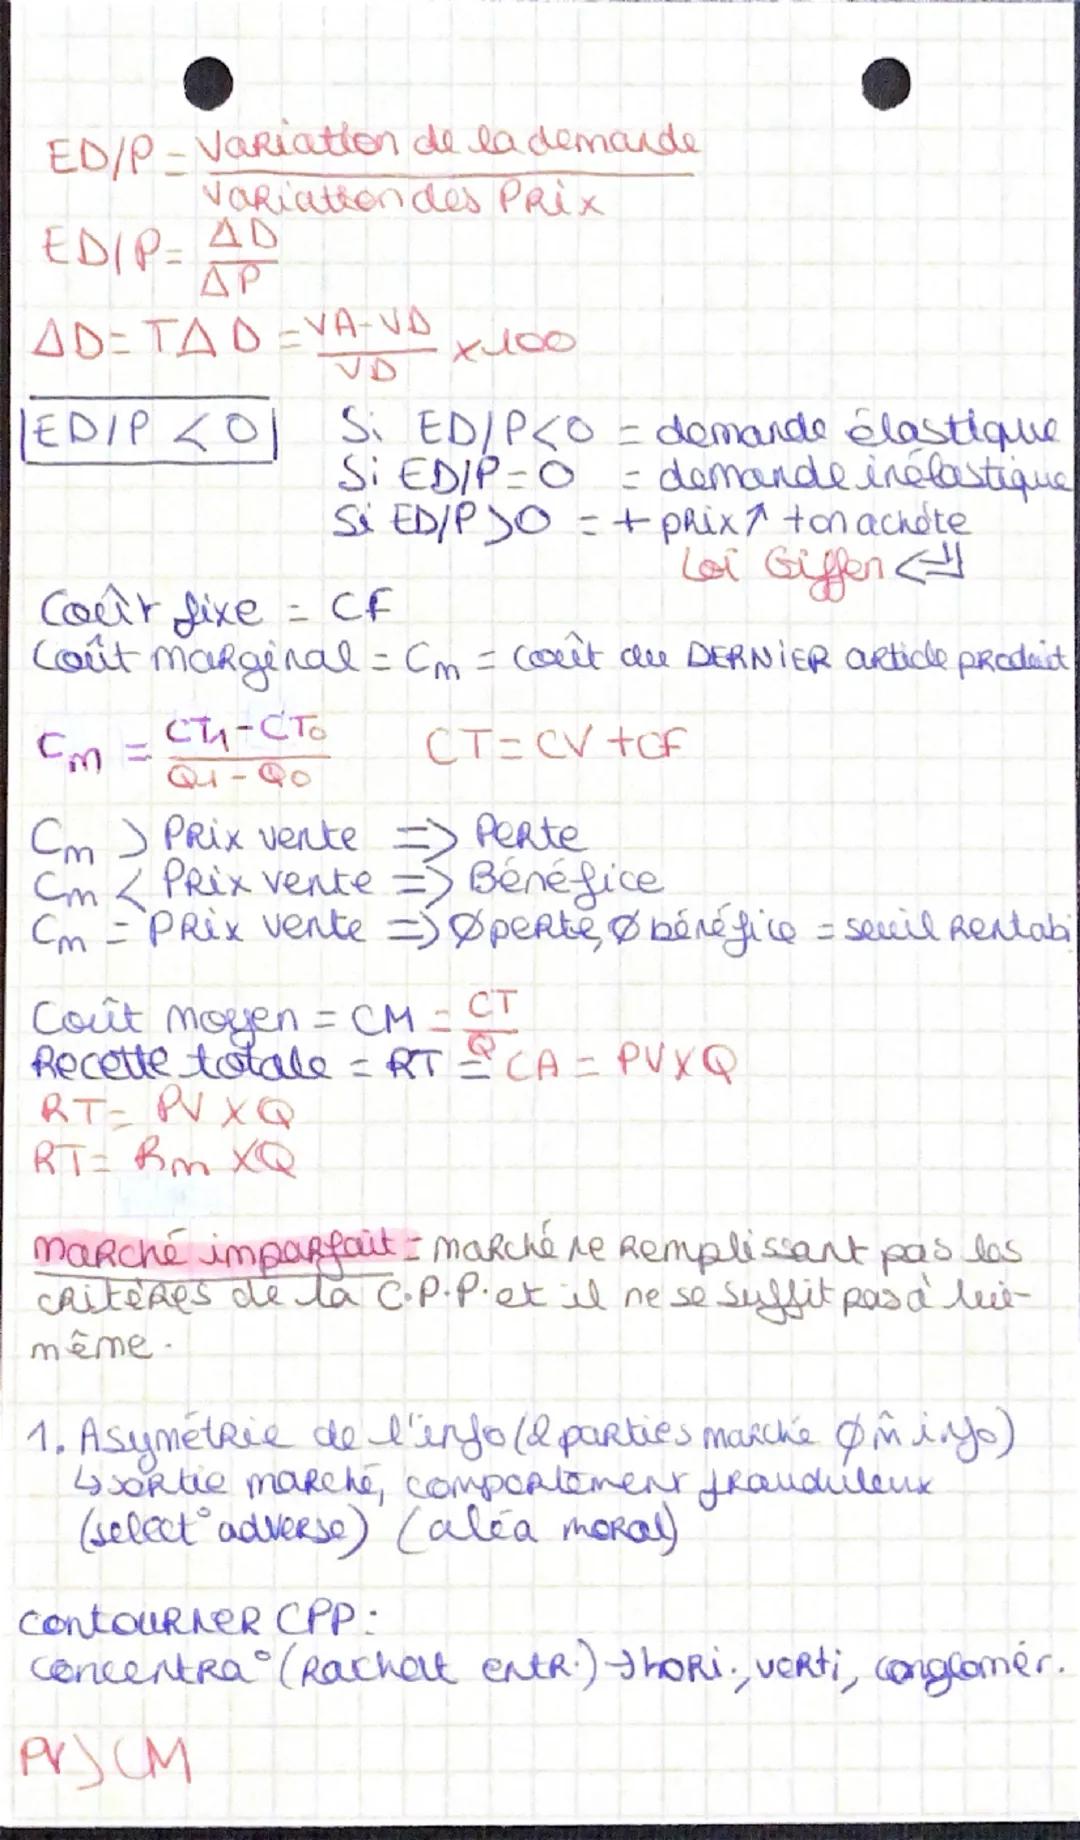 ED/P = Variation de la demande
Variation des Prix
ED/P = ΔD
ΔP
ΔD = TΔD = VA-VD x 100
VD
ED/P < 0
Si ED/P<0 = demande élastique
Si ED/P=0 = demande inélastique
Si ED/P>0 = + prix↑ + on achète
Loi Giffen <=
Coût fixe = CF
Coût marginal = Cm = coût du DERNIER article produit
Cm = CT1-CT0
Q1-Q0
CT = CV + CF
Cm > Prix vente => Perte
Cm < Prix vente => Bénéfice
Cm = Prix vente => Ø perte, Ø bénéfice = seuil Rentabi
Coût moyen = CM = CT
Q
Recette totale = RT = CA = PV x Q
RT = PV x Q
RT = Rm x Q
marché imparfait = marché ne remplissant pas les
critères de la C.P.P. et il ne se suffit pas à lui-
même.
1. Asymétrie de l'info (2 parties marché Ø m̂ info)
↳ sortie marché, comportement frauduleux
(select° adverse) (aléa moral)
contourner CPP :
concentra° (Rachat entr.) → hori., verti, conglomér.
PV > CM